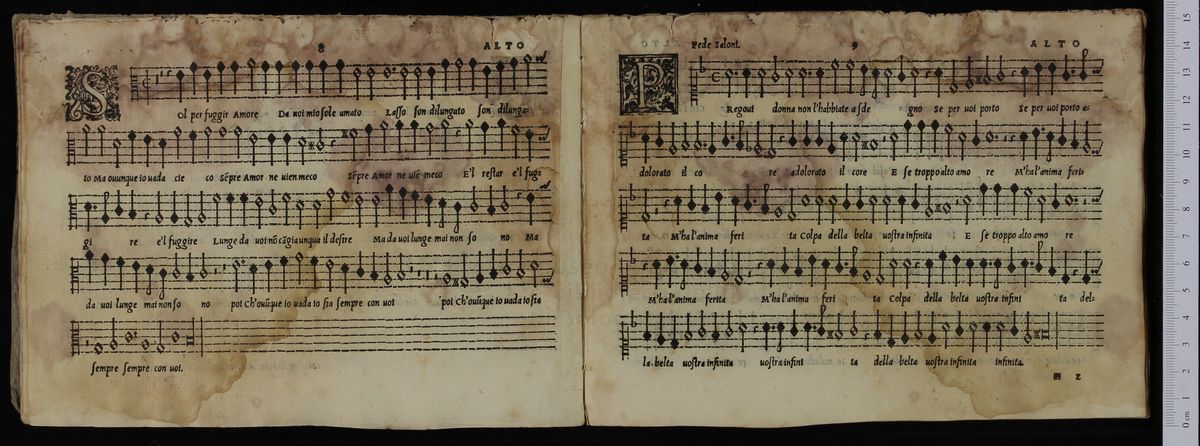 8
ALTO
SOl per fuggir Amore Da uoi mio sole amato Lasso son dilungato son dilunga=
to Ma ouunque io uada cie co Sẽpre Amor ne uien meco Sẽpre Amor ne uiẽ meco E'l restar e'l fug=
gi re e'l fuggire Lunge da uoi nõ cãgia unqua il desire Ma da uoi lunge mai non so no Ma
da uoi lunge mai non so no poi Ch'ouũque io uada io sia sempre con uoi poi Ch'ouũque io uada io sia
sempre sempre con uoi.
Pede Saloni.
9
ALTO
PRegoui donna non l'habbiate a sde gno Se per uoi porto Se per uoi porto a=
dolorato il co re adolorato il core E se troppo alto amo re M'ha l'anima feri=
ta M'ha l'anima feri ta Colpa della belta uostra infinita E se troppo alto amo re
M'ha l'anima ferita M'ha l'anima feri ta Colpa della belta uostra infini ta del=
la belta uostra infinita uostra infini ta della belta uostra infinita infinita.
0 cm 1 2 3 4 5 6 7 8 9 10 11 12 13 14 15